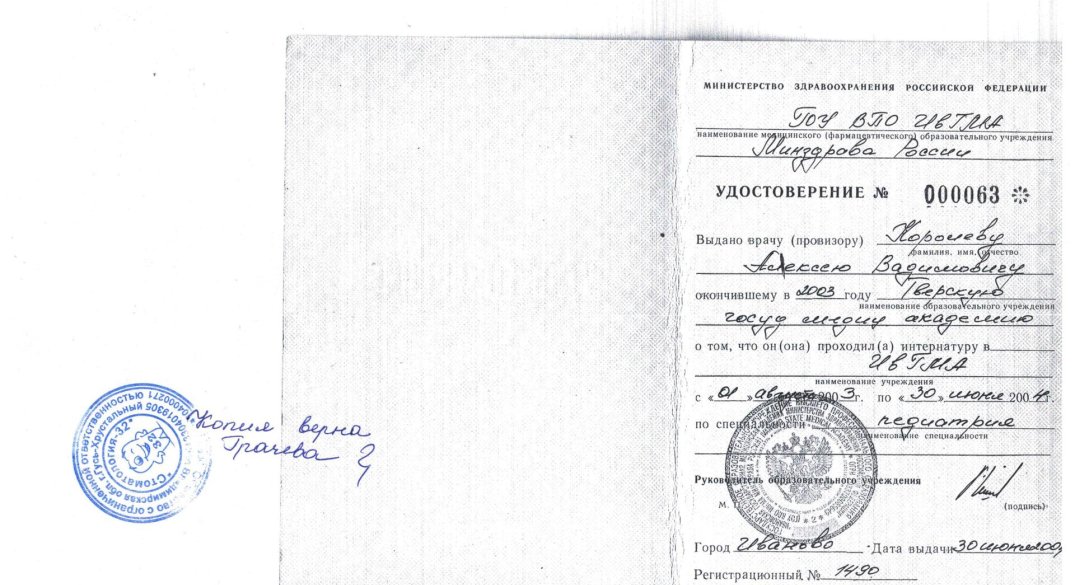 МИНИСТЕРСТВО ЗДРАВООХРАНЕНИЯ РОССИЙСКОЙ ФЕДЕРАЦИИ
ГОУ ВПО ИвГМА
наименование медицинского (фармацевтического) образовательного учреждения
Минздрава России
УДОСТОВЕРЕНИЕ № 000063
Выдано врачу (провизору) Королеву
фамилия, имя, отчество
Алексею Вадимовичу
окончившему в 2003 году Тверскую
наименование образовательного учреждения
госуд медиц академию
о том, что он (она) проходил (а) интернатуру в
ИвГМА
наименование учреждения
с «01» августа 2003 г. по «30» июня 2004 г.
по специальности педиатрия
наименование специальности
Руководитель образовательного учреждения
М. П.
(подпись)
Город Иваново Дата выдачи 30 июня 200
Регистрационный № 1490
Копия верна
Грачева
"Стоматология-32"
с ограниченной ответственностью
г.Гусь-Хрустальный
STATE MEDICAL